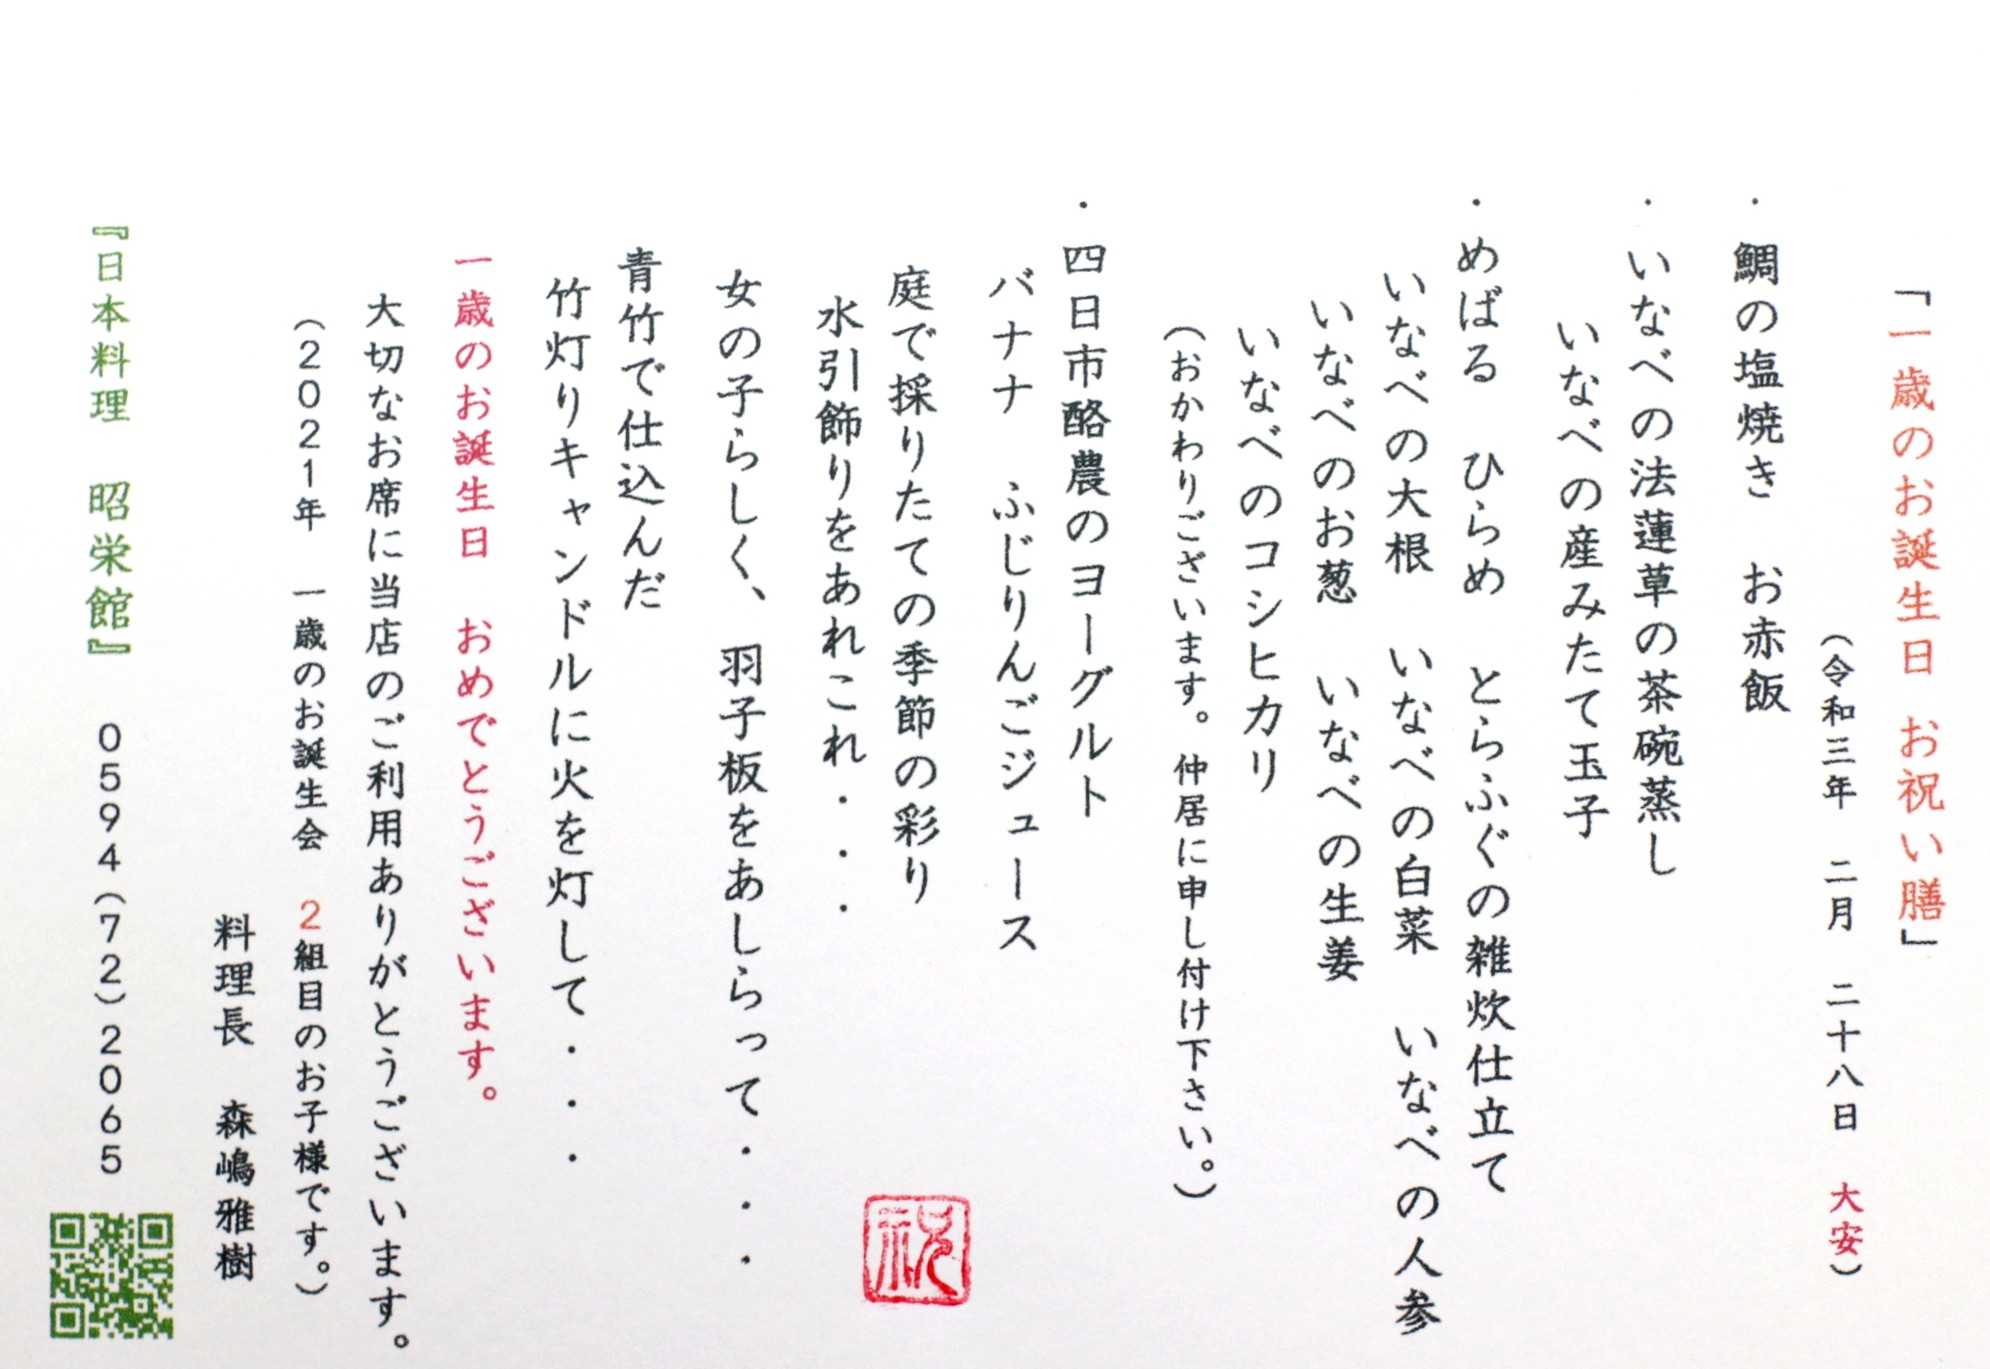 「一歳のお誕生日　お祝い膳」
（令和三年　二月　二十八日　大安）
・鯛の塩焼き　お赤飯
・いなべの法蓮草の茶碗蒸し
いなべの産みたて玉子
・めばる　ひらめ　とらふぐの雑炊仕立て
いなべの大根　いなべの白菜　いなべの人参
いなべのお葱　いなべの生姜
いなべのコシヒカリ
（おかわりございます。仲居に申し付け下さい。）
・四日市酪農のヨーグルト
バナナ　ふじりんごジュース
庭で採りたての季節の彩り
水引飾りをあれこれ・・・
女の子らしく、羽子板をあしらって・・・
青竹で仕込んだ
竹灯りキャンドルに火を灯して・・・
一歳のお誕生日　おめでとうございます。
大切なお席に当店のご利用ありがとうございます。
（２０２１年　一歳のお誕生会　２組目のお子様です。）
料理長　森嶋雅樹
『日本料理　昭栄館』　０５９４（７２）２０６５
祝